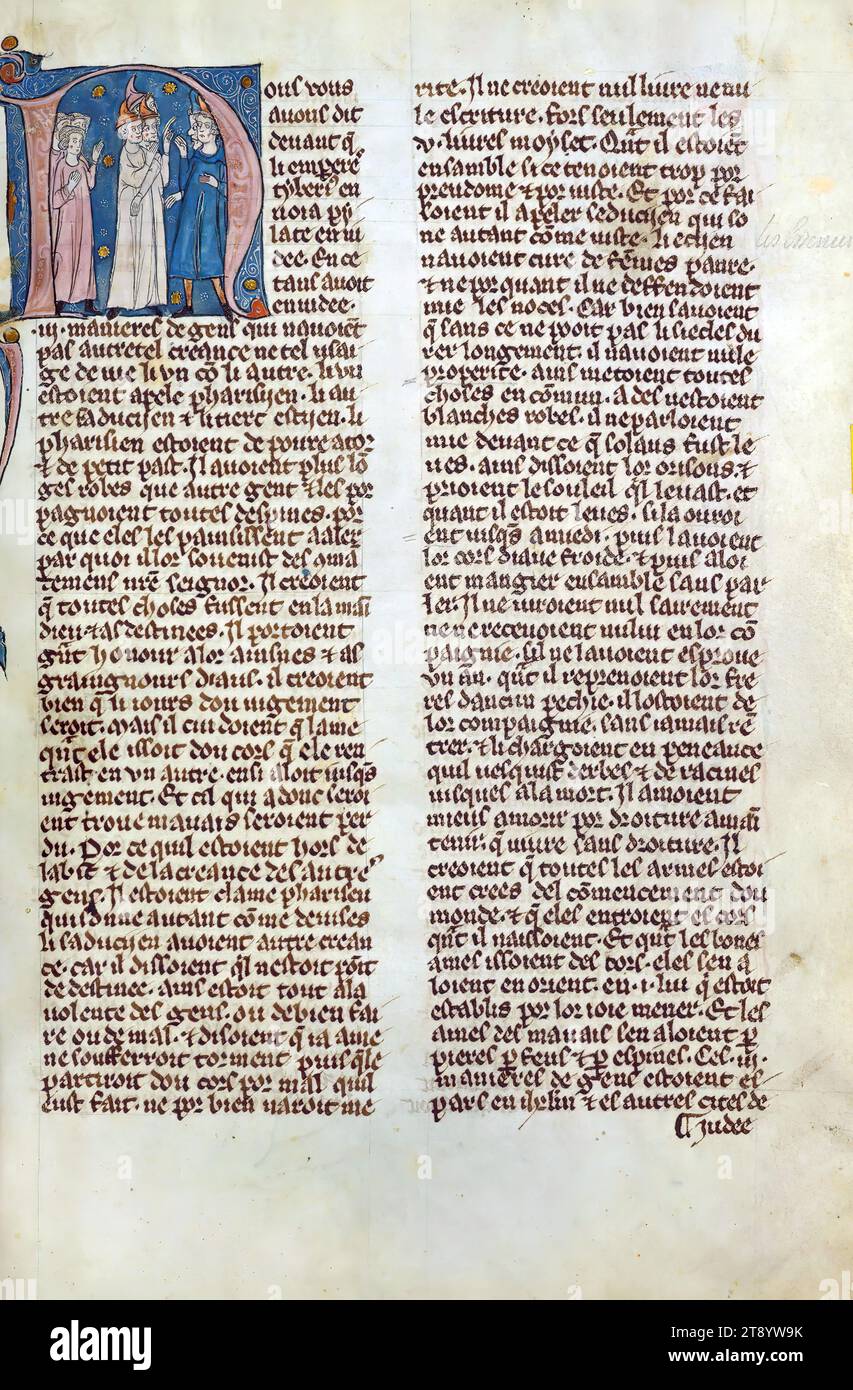 Nous vous
auons dit
deuant q̃
li empere
tyberꝰ en
uoia py
late en iu
dee. En ce
tans auoit
en iudee.
iij. manieres de gens qui nauoiẽt
pas autretel creance ne tel usai
ge de uie li vn cõ li autre. li vn
estoient apele pharisijen. li au
tre saducijen ⁊ li tierc estijen. li
pharisien estoient de poure ator
⁊ de petit past. Il auoient plus lõ
ges robes que autre gent ⁊ les por
pagnoient toutes despines. por
ce que eles les painsissent a aler
par quoi il lor souenist des cõma
temens nr̃e seignor. Il creoient
q̃ toutes choses fussent en la mai
dieu ⁊ as destinees. Il portoient
gñt honour a lor ainsnes ⁊ as
graingnours diaus. il creoient
bien q̃ li iours dou iugement
seroit. mais il cuidoient q̃ lame
qñt ele issoit dou cors q̃ ele ren
trast en vn autre. ensi aloit iusqs
iugement. Et cil qui adonc seroi
ent troue mauais seroient per
du. Por ce quil estoient hors de
labit ⁊ de la creance des autrs
gens. Il estoient clame pharisen
qui sonne autant cõme deuises
li saducijen auoient autre crean
ce. car il dissoient ql nestoit point
de destinee. ains estoit tout a la
violente des gens. ou de bien fai
re ou de mal. ⁊ disoient q̃ ia ame
ne soufferroit torment puis qle
partiroit dou cors por mal quil
eust fait. ne por bien naroit me
rite. Il ne creoient nul liure ne nu
le escriture. fors seulement les
v. liures moyset. Qñt il estoiẽt
ensamble si ce tenoient trop por
preudome ⁊ por iuste. Et por ce fai
soient il apeler seducijen qui so
ne autant cõme iuste. li ecijen
nauoient cure de fẽmes panre.
⁊ ne por quant il ne deffendoient
mie les noces. Car bien sauoient
q̃ sans ce ne pooit pas li siecles du
rer longement. il nauoient nule
properite. ains metoient toutes
choses en cõmun. ades uestoient
blanches robes. il ne parloient
mie deuant ce q̃ solaus fust le
ues. ains dissoient lor orisons. ⁊
prioient le souleil ql leuast. et
quant il estoit leues. si laouroi
ent iusqs a miedi. puis lauoient
lor cors diaue froide. ⁊ puis aloi
ent mangier ensamble sans par
ler. Il ne iuroient nul sairement
ne ne receuoient nului en lor cõ
paignie. sil ne lauoient esproue
vn an. qñt il reprenoient lor fre
res daucun pechie. il lostoient de
lor compaignie. sans iamais rẽ
trer. ⁊ li chargoient en peneance
quil uesquist derbes ⁊ de racines
iusques a la mort. Il amoient
mieus amorir por droiture a main
tenir. q̃ uiure sans droiture. Il
creoient q̃ toutes les armes estoi
ent crees del cõmencement dou
monde. ⁊ q̃ eles entroient es cors
qñt il naissoient. Et qñt les bones
ames issoient des cors. eles sen a
loient en orient. en .i. liu q̃ estoit
establis por lor ioie mener. Et les
ames des mauais sen aloient p
pieres p feus ⁊ p espines. Ces .iij.
manieres de gens estoient es
pars en ihrlm ⁊ es autres cites de
iudee
alamy
Image ID: 2T8YW9K
www.alamy.com